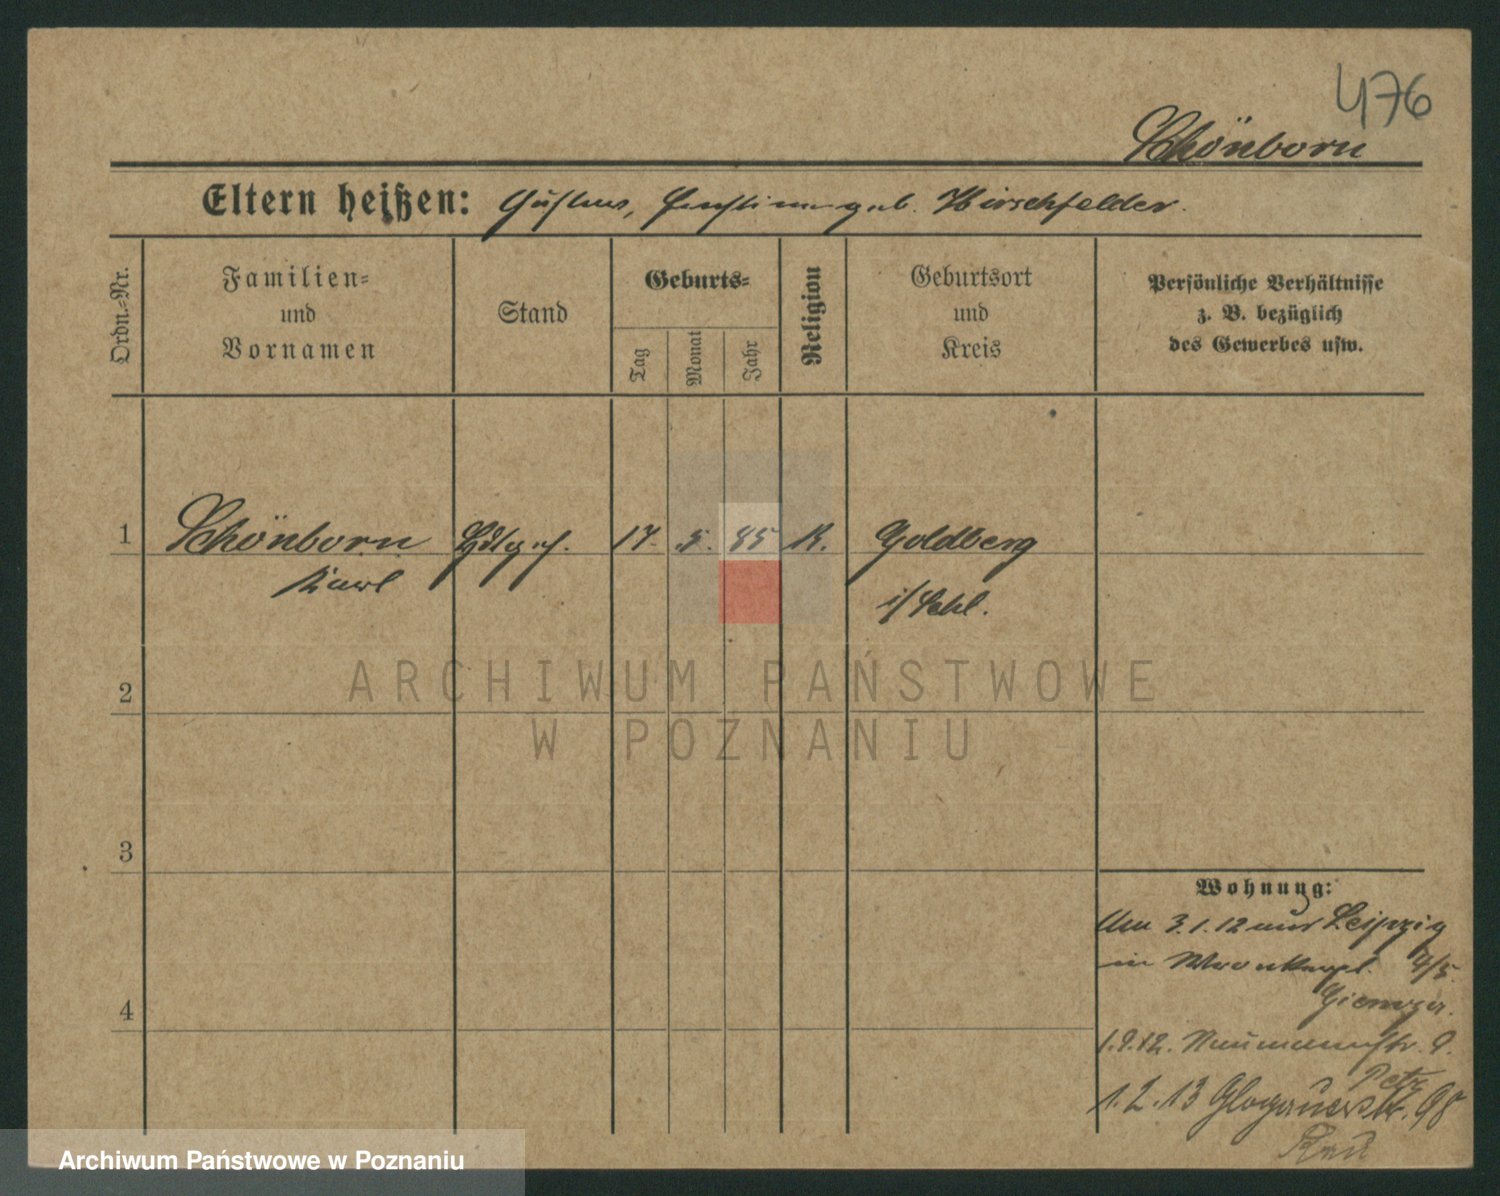 476
Schönborn
Eltern heißen: Gustav, geb. Hirschfelder.
Ordn.-Nr.
Familien-
und
Vornamen
Stand
Geburts-
Tag
Monat
Jahr
Religion
Geburtsort
und
Kreis
Persönliche Verhältnisse
z. B. bezüglich
des Gewerbes usw.
1 Schönborn 17. 5. 85 K. Goldberg
Karl i/Schl.
ARCHIWUM PAŃSTWOWE
W POZNANIU
2
3
4
Wohnung:
Am 3.1.12 aus Leipzig
in 4/5
1.9.12. Naumannstr. 9.
1.2.13 Glogauerstr. 98
Archiwum Państwowe w Poznaniu